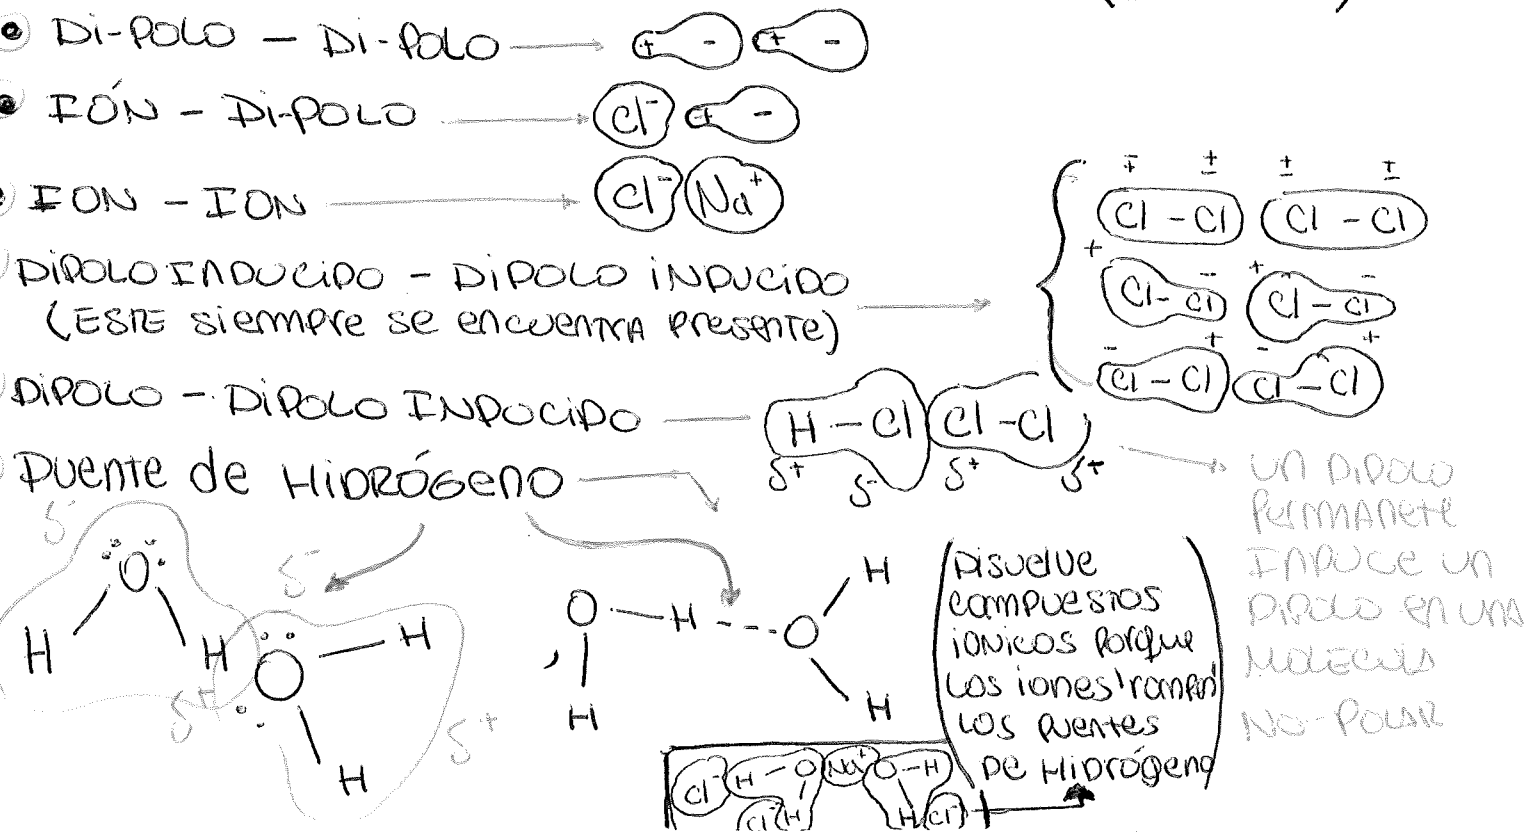 Di-POLO - Di-POLO + - + -
IÓN - Di-POLO Cl⁻ + -
ION - ION Cl⁻ Na⁺
DIPOLO INDUCIDO - DIPOLO INDUCIDO
(ESTE siemmpre se encuentra presente)
Cl - Cl Cl - Cl
+ - + -
Cl - Cl Cl - Cl
- + - +
Cl - Cl Cl - Cl
DIPOLO - DIPOLO INDUCIDO H - Cl Cl - Cl
δ+ δ- δ+ δ+
UN DIPOLO
PERMANETE
INDUCE UN
DIPOLO EN UNA
MOLECULA
NO-POLAR
PUENTE de HIDRÓGENO
δ- O H H δ+
δ- O H H δ+
O - H ---- O H
H H
DISUELVE
COMPUESTOS
IONICOS PORQUE
LOS IONES 'ROMPEN'
LOS PUENTES
DE HIDRÓGENO
Cl⁻ H - O Na⁺ O - H
Cl⁻ H H Cl⁻